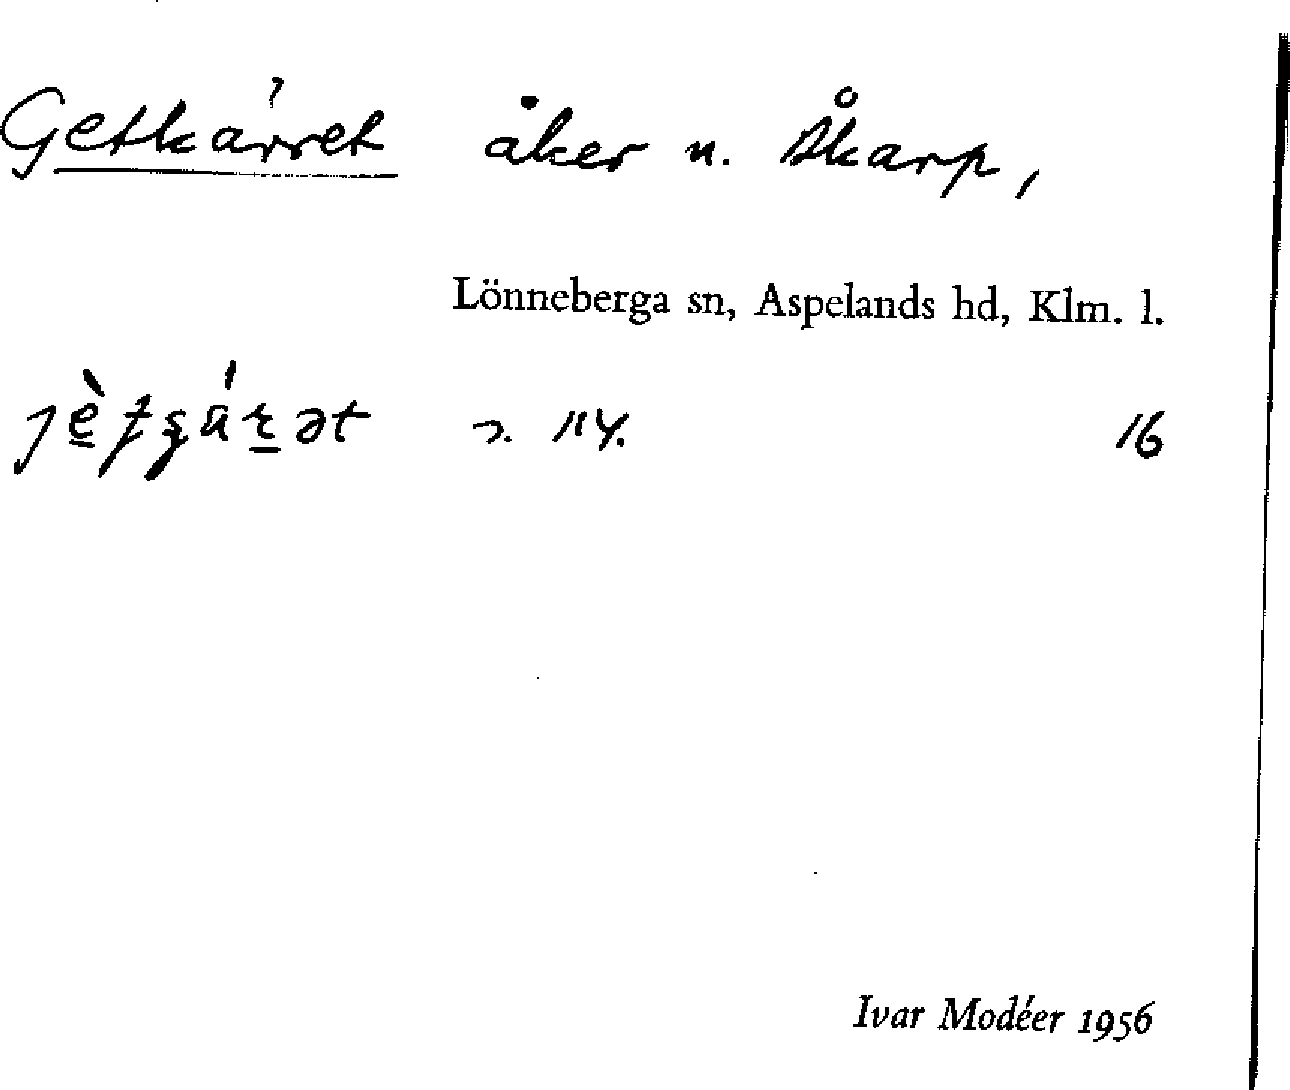 Getkärret åker n. Åkarp,
Lönneberga sn, Aspelands hd, Klm. l.
16
Ivar Modéer 1956